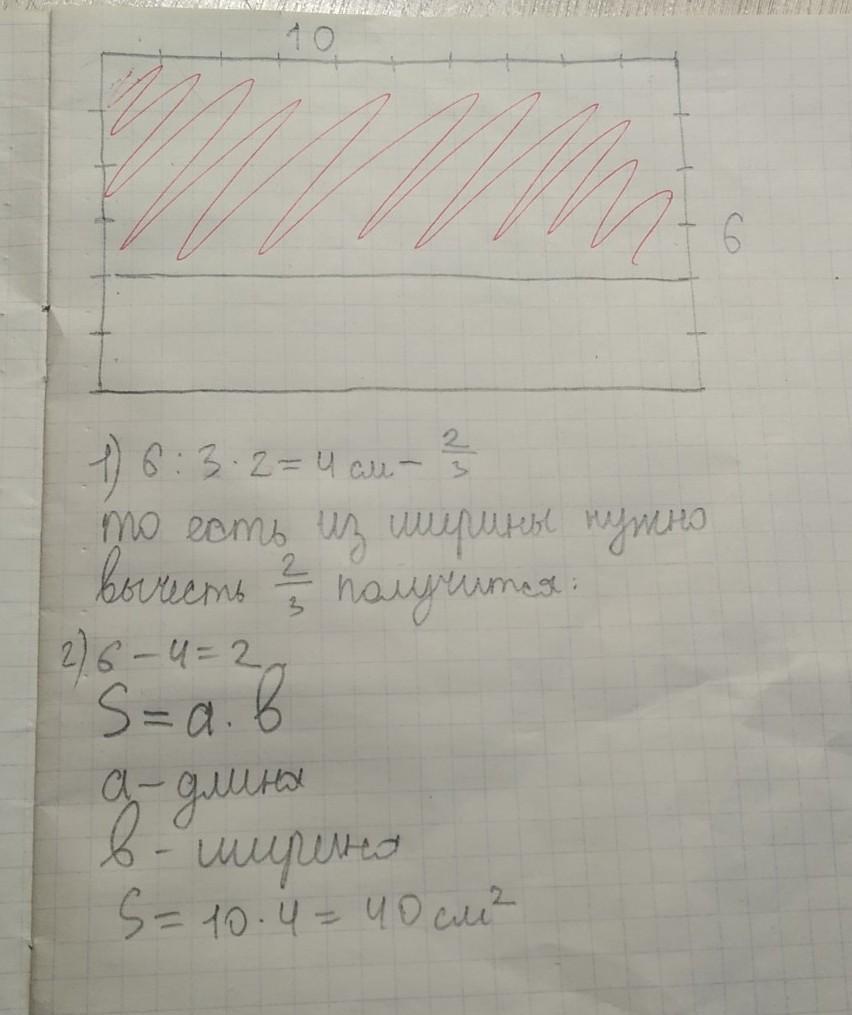 10
6
1) 6 : 3 · 2 = 4 см - 2/3
то есть из ширины нужно
вычесть 2/3 получится:
2) 6 - 4 = 2
S = a · b
a - длина
b - ширина
S = 10 · 4 = 40 см²